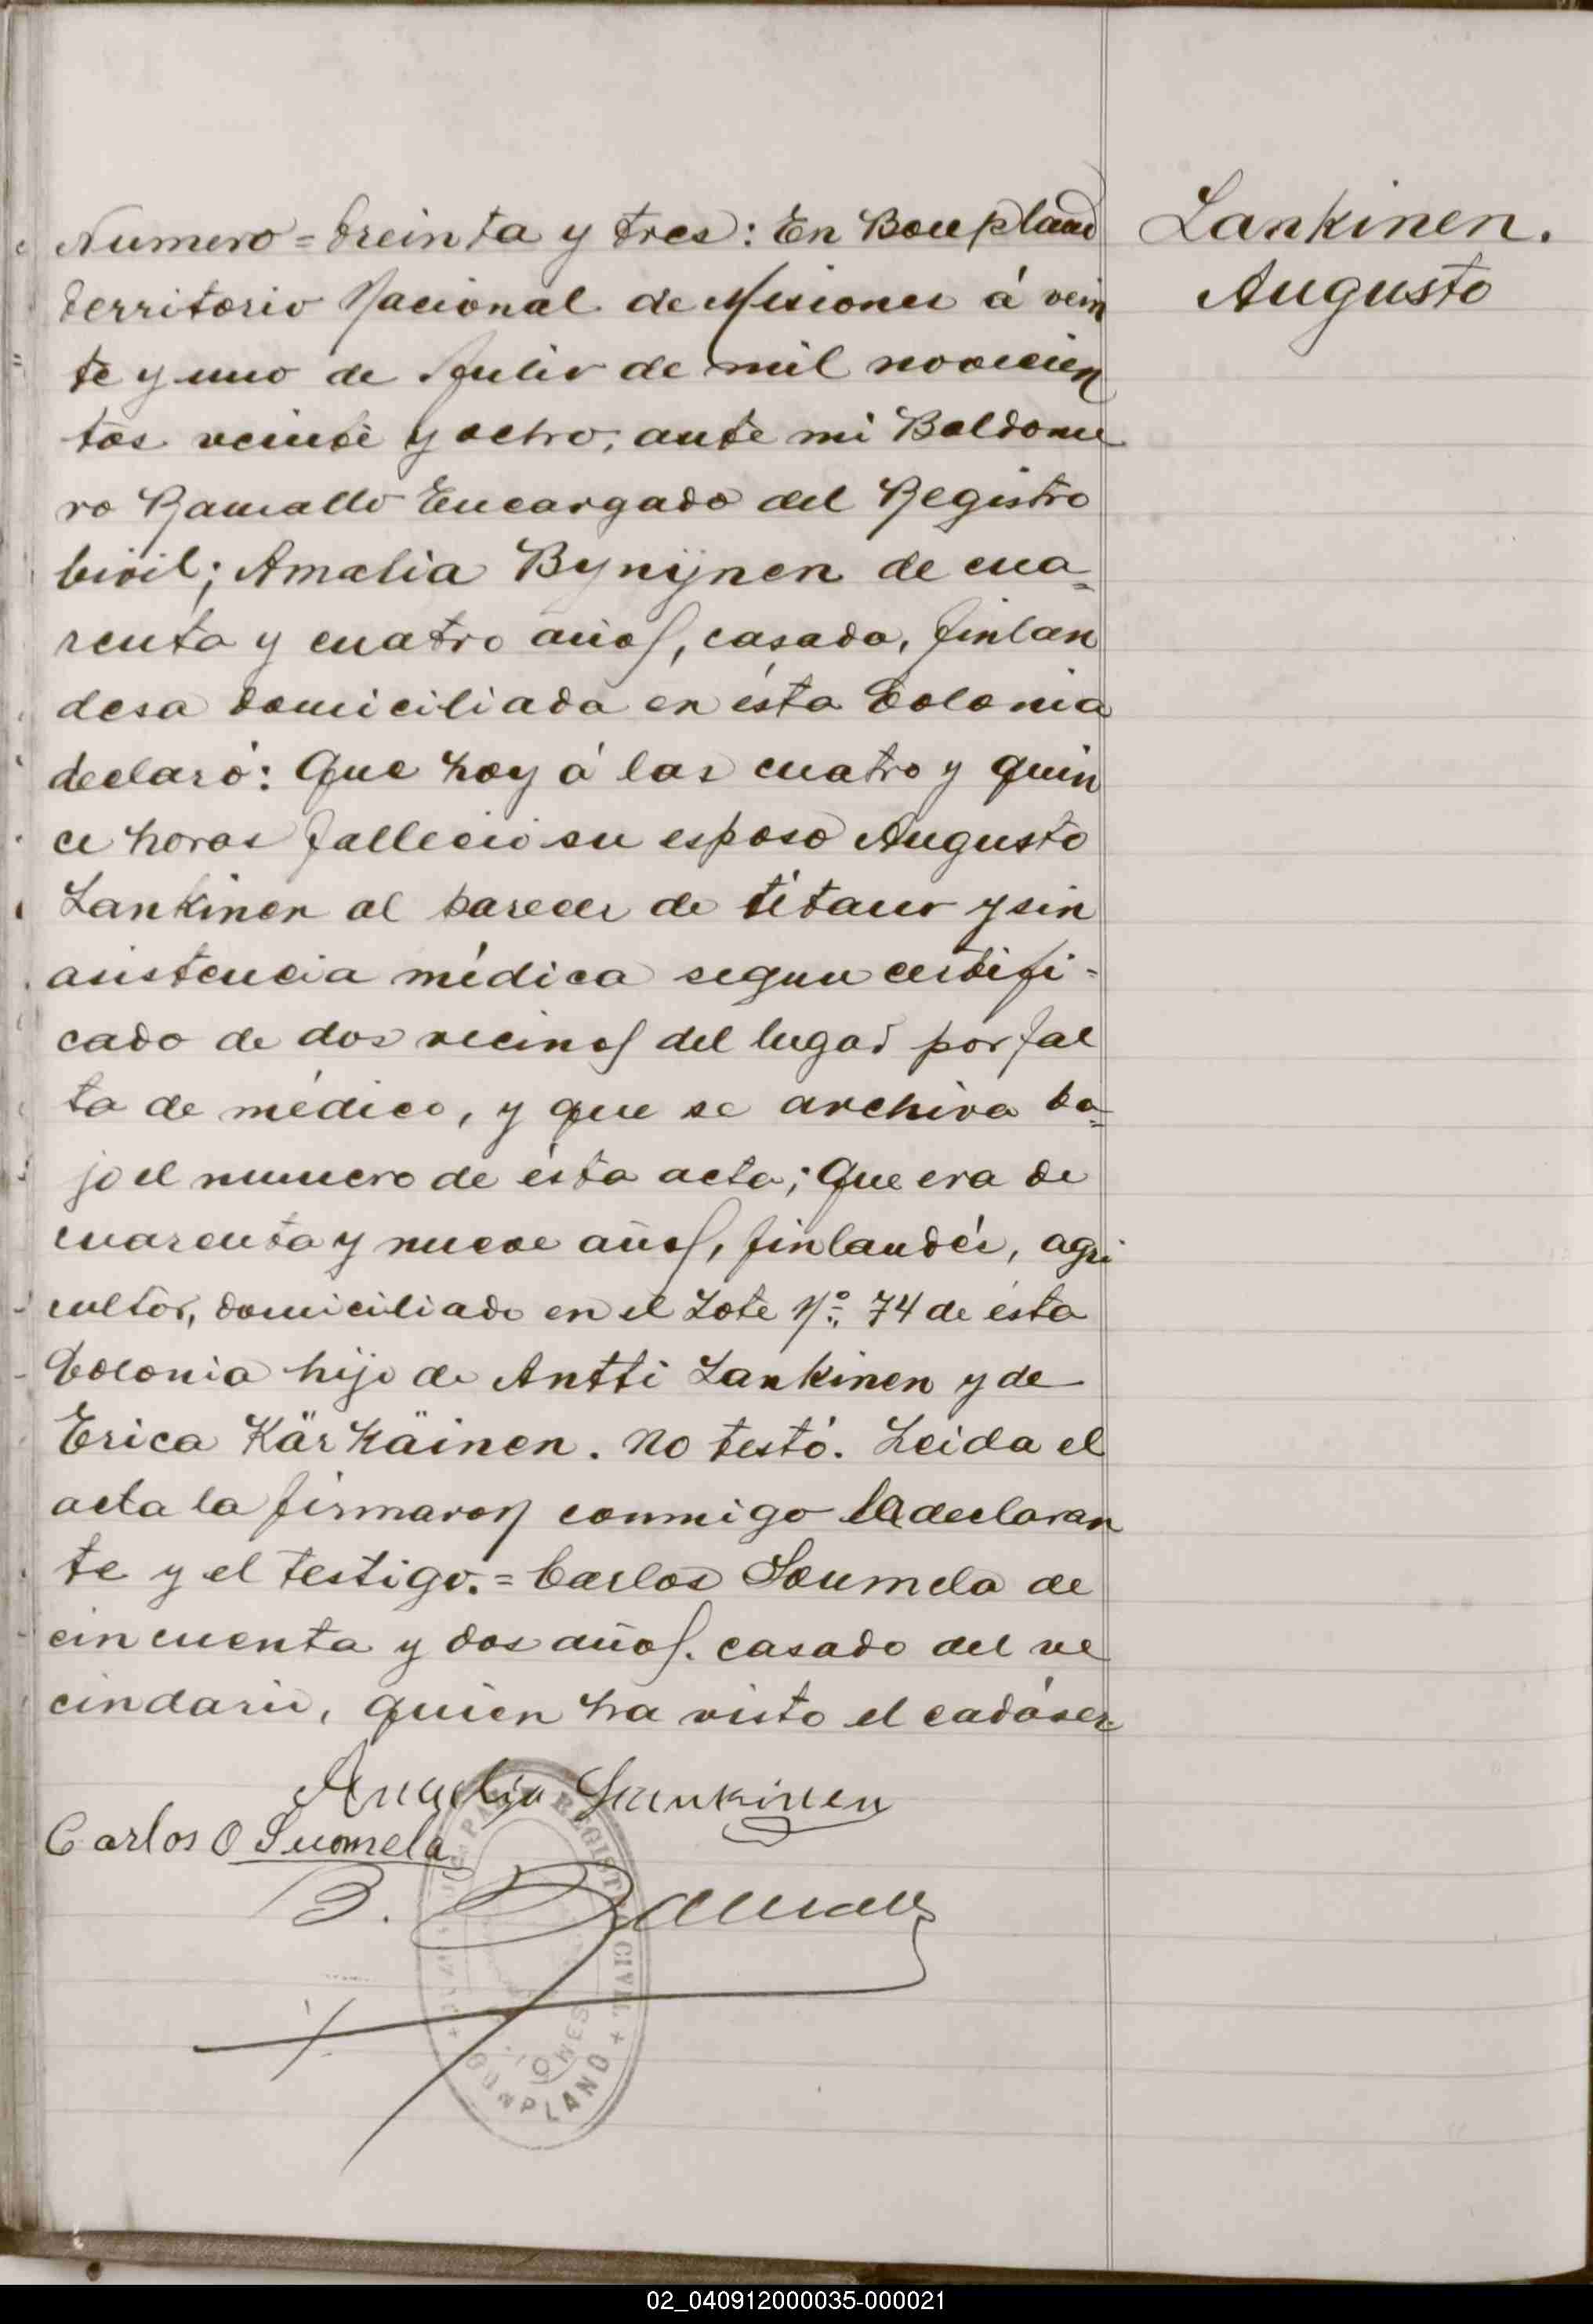 Lankinen.
Augusto
Numero = treinta y tres: En Bonpland
territorio Nacional de Misiones á vein
te y uno de Julio de mil novecien
tos veinte y ocho, ante mi Baldome
ro Ramallo Encargado del Registro
Civil; Amalia Bynijnen de cua=
renta y cuatro años, casada, finlan
desa domiciliada en ésta Colonia
declaró: Que hoy á las cuatro y quin
ce horas falleció su esposo Augusto
Lankinen al parecer de tétano y sin
asistencia médica segun certifi-
cado de dos vecinos del lugar por fal
ta de médico, y que se archiva ba=
jo el numero de ésta acta; Que era de
cuarenta y nueve años, finlandés, agri
cultor, domiciliado en el Lote Nº 74 de ésta
Colonia hijo de Antti Lankinen y de
Erica Kärkäinen. No testó. Leida el
acta la firmaron conmigo la declaran
te y el testigo.= Carlos Soumela de
cincuenta y dos años. casado del ve
cindario, quien ha visto el cadáver
Amalia Lankinen
Carlos O Suomela
B. Ramallo
REGISTRO CIVIL
BONPLAND
02_040912000035-000021